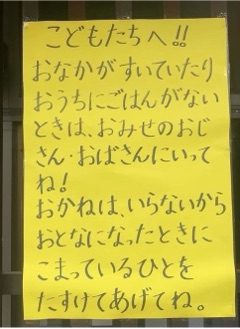 こどもたちへ!!
おなかがすいていたり
おうちにごはんがない
ときは、おみせのおじ
さん・おばさんにいって
ね!
おかねは、いらないから
おとなになったときに
こまっているひとを
たすけてあげてね。